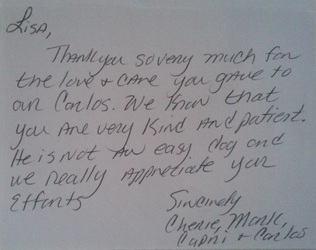 Lisa,
Thank you so very much for
the love + care you gave to
our Carlos. We know that
you are very kind and patient.
He is not an easy dog and
we really appreciate your
efforts
Sincerely
Cherie, Mark,
Capri + Carlos